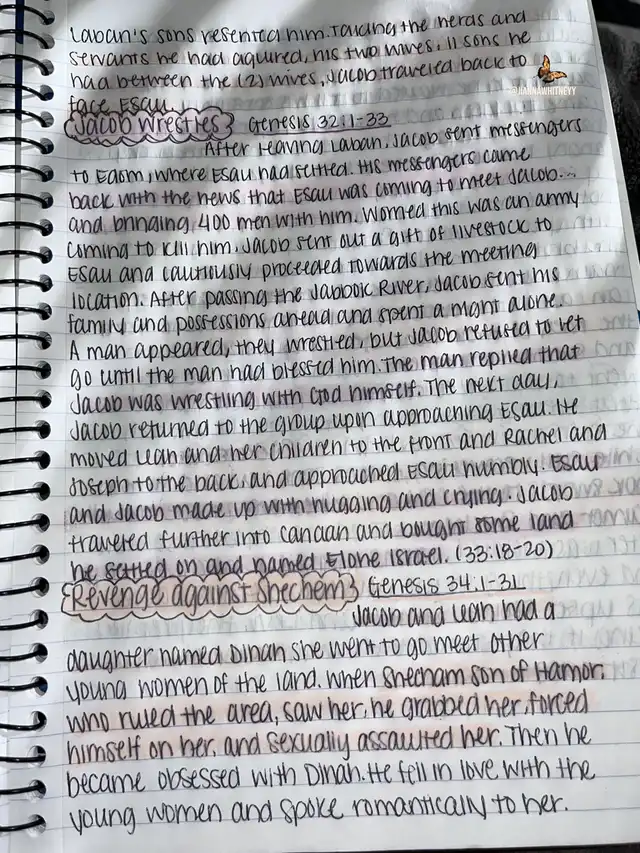 Laban's sons resented him. Taking the herds and
servants he had aqured, his two wives, 11 sons he
had between the (2) wives, Jacob traveled back to
face Esau.
@JIANNAWHITNEYY
Jacob Wrestles Genesis 32:1-33
After leaving Laban, Jacob sent messengers
to Edom, where Esau had settled. His messengers came
back with the news that Esau was coming to meet Jacob...
and bringing 400 men with him. Worried this was an army
coming to kill him, Jacob sent out a gift of livestock to
Esau and cautiously proceeded towards the meeting
location. After passing the Jabbok River, Jacob sent his
family and possessions ahead and spent a night alone.
A man appeared, they wrestled, but Jacob refused to let
go until the man had blessed him. The man replied that
Jacob was wrestling with God himself. The next day,
Jacob returned to the group upon approaching Esau. He
moved Leah and her children to the front and Rachel and
Joseph to the back, and approached Esau humbly. Esau
and Jacob made up with hugging and crying. Jacob
traveled further into Canaan and bought some land
he settled on and named Elone Israel. (33:18-20)
Revenge against Shechem Genesis 34:1-31
Jacob and Leah had a
daughter named Dinah she went to go meet other
young women of the land. When Shecham son of Hamor,
who ruled the area, saw her, he grabbed her, forced
himself on her, and sexually assaulted her. Then he
became obsessed with Dinah. He fell in love with the
young women and spoke romantically to her.